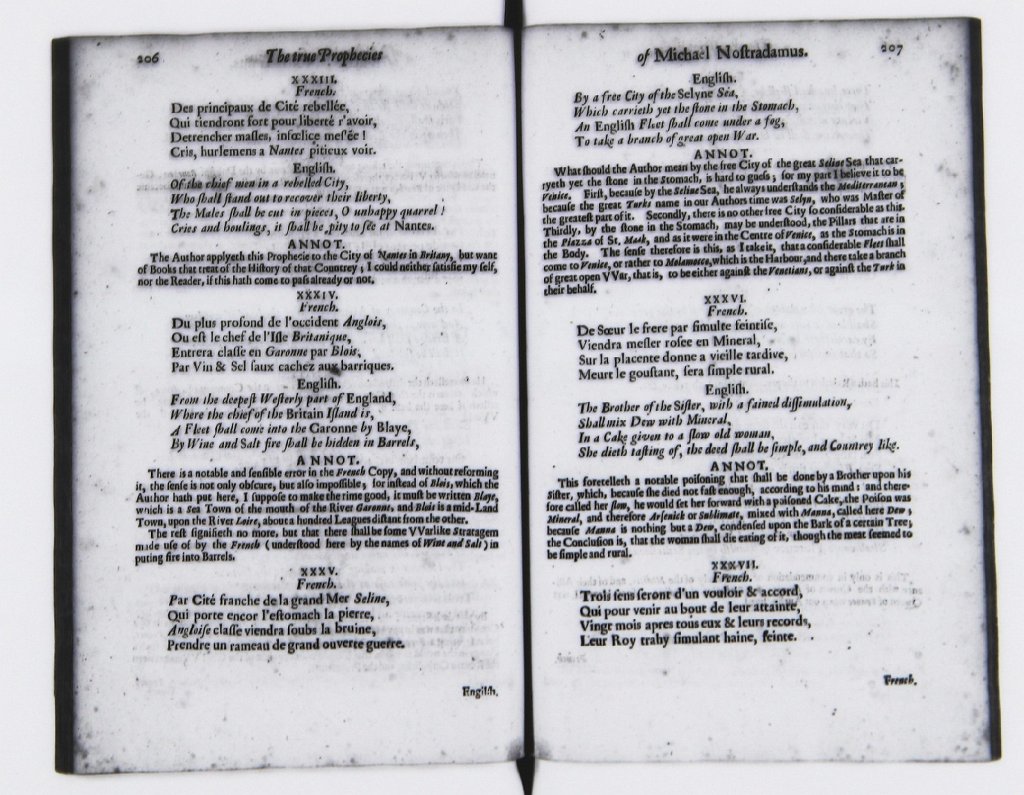 206
The true Prophecies
XXXIII.
French.
Des principaux de Cité rebellée,
Qui tiendront fort pour liberté r'avoir,
Detrencher masles, infœlice meſlée !
Cris, hurlemens a Nantes piteux voir.
Engliſh.
Of the chief men in a rebelled City,
Who ſhall ſtand out to recover their liberty,
The Males ſhall be cut in pieces, O unhappy quarrel !
Cries and houlings, it ſhall be pity to ſee at Nantes.
ANNOT.
The Author applyeth this Prophetie to the City of Nantes in Britany, but want
of Books that treat of the Hiſtory of that Countrey ; I could neither ſatisfie my ſelf,
nor the Reader, if this hath come to paſs already or not.
XXXIV.
French.
Du plus profond de l'occident Anglois,
Ou eſt le chef de l'Iſle Britanique,
Entrera claſſe en Garonne par Blois,
Par Vin & Sel faux cachez aux barriques.
Engliſh.
From the deepeſt Weſterly part of England,
Where the chief of the Britain Iſland is,
A Fleet ſhall come into the Garonne by Blaye,
By Wine and Salt fire ſhall be hidden in Barrels,
ANNOT.
There is a notable and ſenſible error in the French Copy, and without reforming
it, the ſenſe is not only obſcure, but alſo impoſſible ; for inſtead of Blois, which the
Author hath put here, I ſuppoſe to make the rime good, it muſt be written Blaye,
which is a Sea Town of the mouth of the River Garonne, and Blois is a mid-Land
Town, upon the River Loire, about a hundred Leagues diſtant from the other.
The reſt ſignifieth no more, but that there ſhall be ſome VVarlike Stratagem
made uſe of by the French (underſtood here by the names of Wine and Salt) in
puting fire into Barrels.
XXXV.
French.
Par Cité franche de la grand Mer Seline,
Qui porte encor l'eſtomach la pierre,
Angloiſe claſſe viendra ſoubs la bruine,
Prendre un rameau de grand ouverte guerre.
Engliſh.
of Michael Noſtradamus.
207
Engliſh.
By a free City of the Selyne Sea,
Which carrieth yet the ſtone in the Stomach,
An Engliſh Fleet ſhall come under a fog,
To take a branch of great open War.
ANNOT.
What ſhould the Author mean by the free City of the great Seline Sea that car-
ryeth yet the ſtone in the Stomach, is hard to gueſs ; for my part I believe it to be
Venice. Firſt, becauſe by the Seline Sea, he always underſtands the Mediterranean ;
becauſe the great Turks name in our Authors time was Selyn, who was Maſter of
the greateſt part of it. Secondly, there is no other free City ſo conſiderable as this.
Thirdly, by the ſtone in the Stomach, may be underſtood, the Pillars that are in
the Piazza of St. Mark, and as it were in the Centre of Venice, as the Stomach is in
the Body. The ſenſe therefore is this, as I take it, that a conſiderable Fleet ſhall
come to Venice, or rather to Melamocco, which is the Harbour, and there take a branch
of great open VVar, that is, to be either againſt the Venetians, or againſt the Turk in
their behalf.
XXXVI.
French.
De Sœur le frere par ſimulte feintiſe,
Viendra meſler roſee en Mineral,
Sur la placente donne a vieille tardive,
Meurt le gouſtant, ſera ſimple rural.
Engliſh.
The Brother of the Siſter, with a fained diſſimulation,
Shall mix Dew with Mineral,
In a Cake given to a ſlow old woman,
She dieth taſting of, the deed ſhall be ſimple, and Countrey like.
ANNOT.
This foretelleth a notable poiſoning that ſhall be done by a Brother upon his
Siſter, which, becauſe ſhe died not faſt enough, according to his mind ; and there-
fore called her ſlow, he would ſet her forward with a poiſoned Cake, the Poiſon was
Mineral, and therefore Arſenick or Sublimate, mixed with Manna, called here Dew ;
becauſe Manna is nothing but a Dew, condenſed upon the Bark of a certain Tree;
the Concluſion is, that the woman ſhall die eating of it, though the meat ſeemed to
be ſimple and rural.
XXXVII.
French.
Trois ſens ſeront d'un vouloir & accord,
Qui pour venir au bout de leur attainte,
Vingt mois apres tous eux & leurs records,
Leur Roy trahy ſimulant haine, feinte.
French.